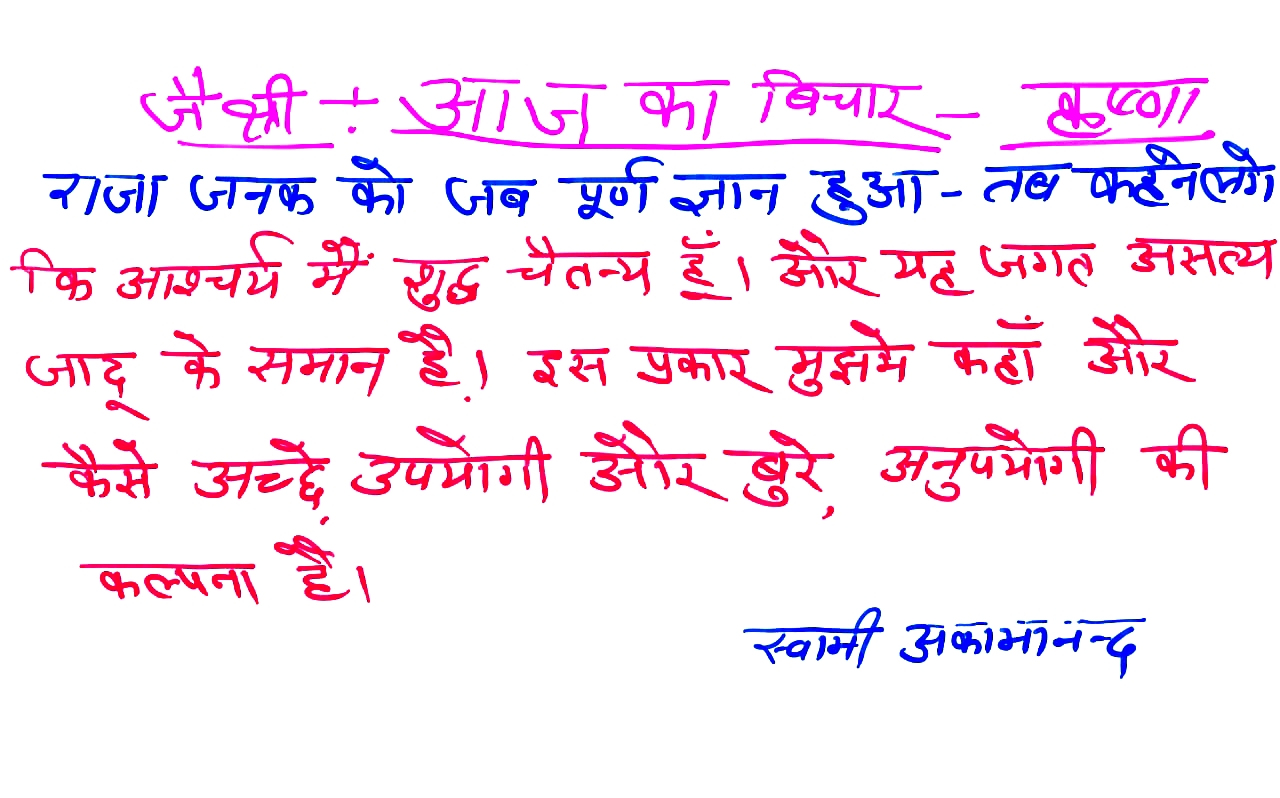 जै श्री ÷ आज का बिचार - कृष्णा
राजा जनक को जब पूर्ण ज्ञान हुआ - तब कहने लगे
कि आश्चर्य मैं शुद्ध चैतन्य हूँ। और यह जगत असत्य
जादू के समान है। इस प्रकार मुझमे कहाँ और
कैसे अच्छे, उपयोगी और बुरे, अनुपयोगी की
कल्पना है।
स्वामी अकामानन्द